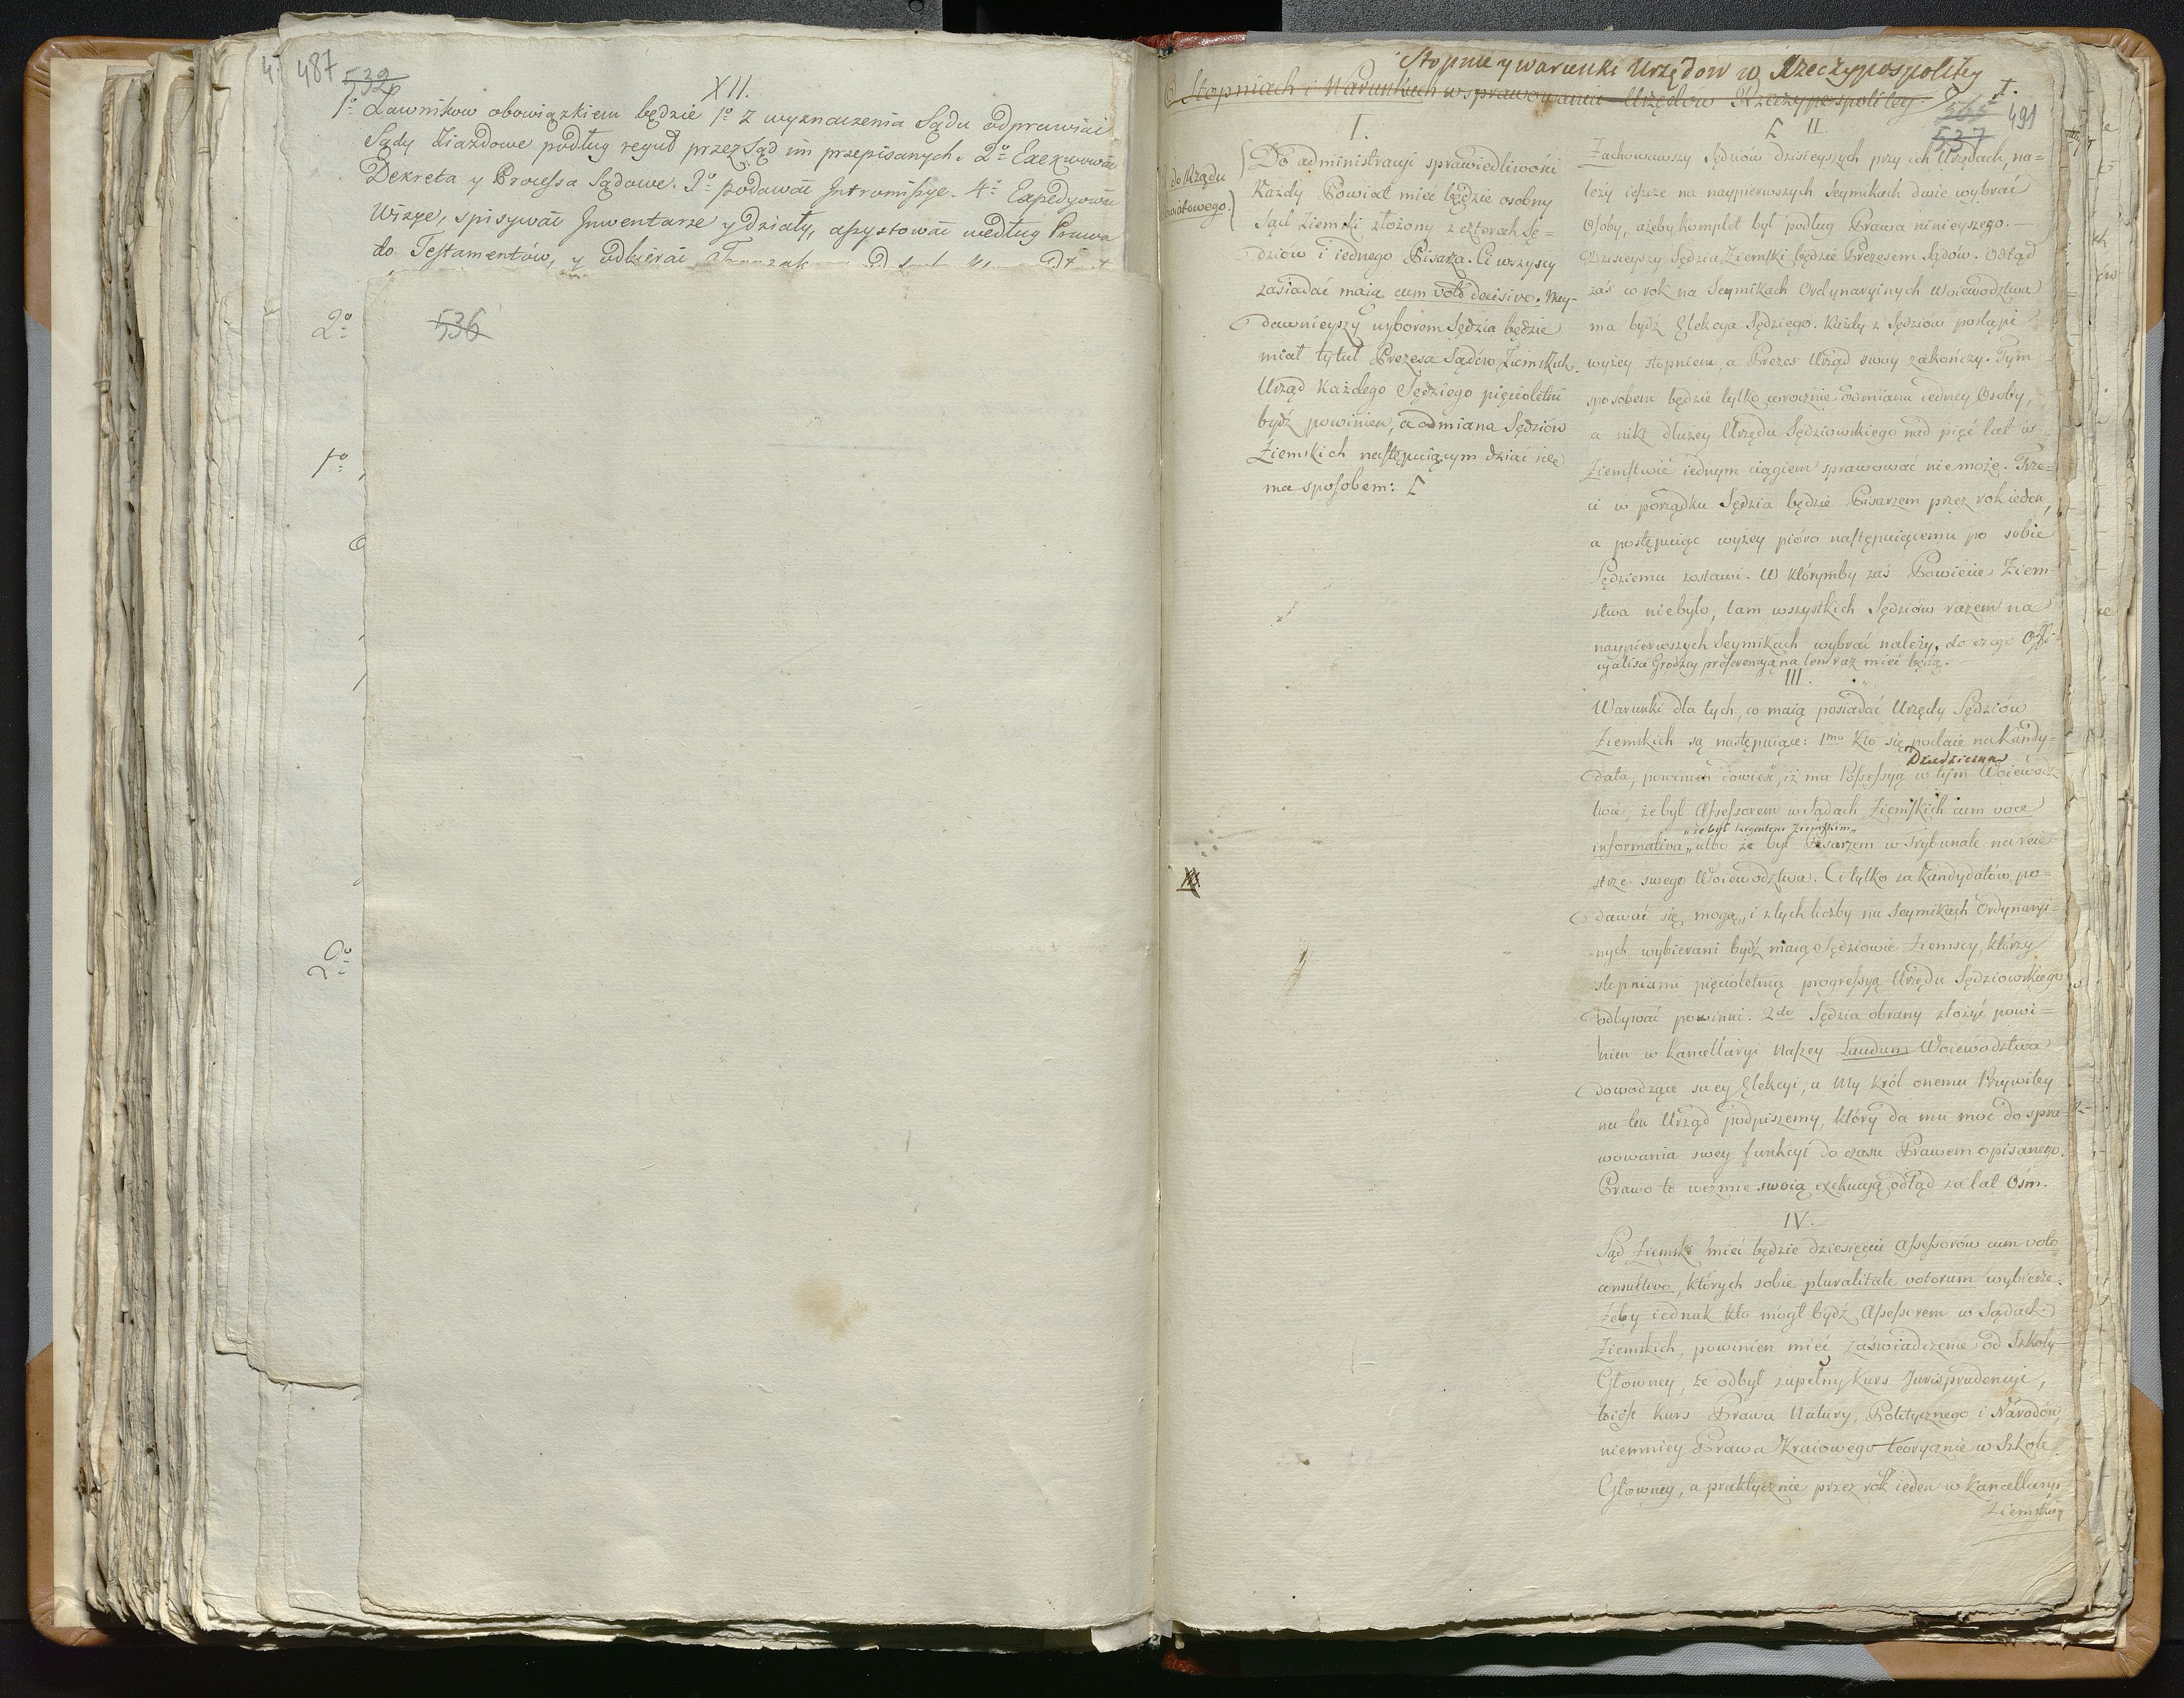 487 532
XII.
1º Ławnikow obowiązkiem będzie 1º Z wyznaczenia Sądu odprawiać
Sądy Ziazdowe podług reguł przez Sąd im przepisanych. 2º Exekwować
Dekreta y Processa Sądowe. 3º podawać Intromissye. 4º Expedyować
Wizye, spisywać Inwentarze y działy, assystować według Prawa
do Testamentów, y odbierać
2º
536
1º
2º
Stopnie y warunki Urzędow w Rzeczypospolitey
O Stopniach i Warunkach w sprawowaniu Urzędów Rzeczypospolitey
565 491
537
I.
do Rządu
Do administracyi sprawiedliwości
Każdy Powiat mieć będzie osobny
Sąd Ziemski złożony z czterech Sę=
dziów i iednego Pisarza. Ci wszyscy
zasiadać maią cum voto decisivo. Nay-
dawnieyszy wyborem Sędzia będzie
miał tytuł Prezesa Sądów Ziemskich.
Urząd Każdego Sędziego pięcioletni
bydź powinien, a odmiana Sędziów
Ziemskich następuiącym dziać się
ma sposobem: [
[ II.
Zachowawszy Sędziów dzisieyszych przy ich Urzędach, na=
leży ieszcze na naypierwszych Seymikach dwie wybrać
Osoby, ażeby komplet był podług Prawa ninieyszego.
Dzisieyszy Sędzia Ziemski będzie Prezesem Sądów. Odtąd
zaś co rok na Seymikach Ordynaryinych Woiewodztwa
ma bydź Elekcya Sędziego. Każdy z Sędziów postąpi
wyżey stopniem, a Prezes Urząd swoy zakończy. Tym
sposobem będzie tylko corocznie odmiana iedney Osoby,
a nikt dłużey Urzędu Sędziowskiego nad pięć lat w
Ziemstwie iednym ciągiem sprawować nie może. Trze=
ci w porządku Sędzia będzie Pisarzem przez rok ieden,
a postępuiąc wyżey pióro następuiącemu po sobie
Sędziemu zostawi. W którymby zaś Powiecie Ziem-
stwa niebyło, tam wszystkich Sędziów razem na
naypierwszych Seymikach wybrać należy, do czego Offi-
cyalisci Grodzcy preferencyą na ten raz mieć będą.
III.
Warunki dla tych, co maią posiadać Urzędy Sędziów
Ziemskich są następuiące: 1mo Kto się podaie na Kandy=
Dziedziczną
data, powinien dowieść, iż ma Possessyą w tym Woiewodz-
twie, że był Assessorem w Sądach Ziemskich cum voce
„że był Regentem Ziemskim„
informativa, „albo że był Pisarzem w Trybunale na Reie-
strze swego Woiewodztwa. Ci tylko za Kandydatów po=
dawać się mogą, i z tych liczby na Seymikach Ordynaryi=
nych wybierani bydź maią Sędziowie Ziemscy, którzy
stopniami pięcioletnią progressyą Urzędu Sędziowskiego
odbywać powinni. 2do Sędzia obrany złożyć powi=
nien w Kancellaryi Naszey Laudum Woiewodztwa
dowodzące swey Elekcyi, a My Król onemu Przywiley
na ten Urząd podpiszemy, który da mu moc do spra-
wowania swey funkcyi do czasu Prawem opisanego.
Prawo to weźmie swoią exekucyą odtąd za lat Ośm.
IV.
Sąd Ziemski mieć będzie dziesięciu Assessorów cum voto
consultivo, których sobie pluralitate votorum wybierze.
Żeby iednak kto mógł bydź Assessorem w Sądach
Ziemskich, powinien mieć zaświadczenie od Szkoły
Głowney, że odbył zupełny kurs Jurisprudencyi,
toiest kurs Prawa Natury, Politycznego i Narodów,
niemniey Prawa Kraiowego teorycznie w Szkole
Głowney, a praktycznie przez rok ieden w Kancellaryi
Ziemskiey